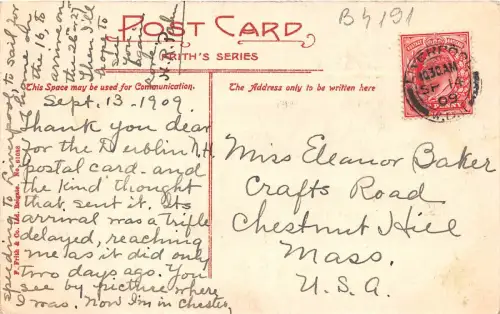 POST CARD
FRITH'S SERIES
This Space may be used for Communication.
The Address only to be written here
B4191
LIVERPOOL
10.30 AM
SP 14
09
Sept. 13 - 1909.
Thank you dear
for the Dublin N.H.
postal card - and
the kind thought
that sent it. Its
arrival was a trifle
delayed, reaching
me as it did only
two days ago. You
see by picture where
I was. Now I'm in Chester,
speeding to Liverpool, to sail for
home on
the 16, to
arrive on
the 26-27
Then I'll
hope to
see
you
soon
Miss Eleanor Baker
Crafts Road
Chestnut Hill
Mass.
U.S.A.
F. Frith & Co. Ltd. Reigate.